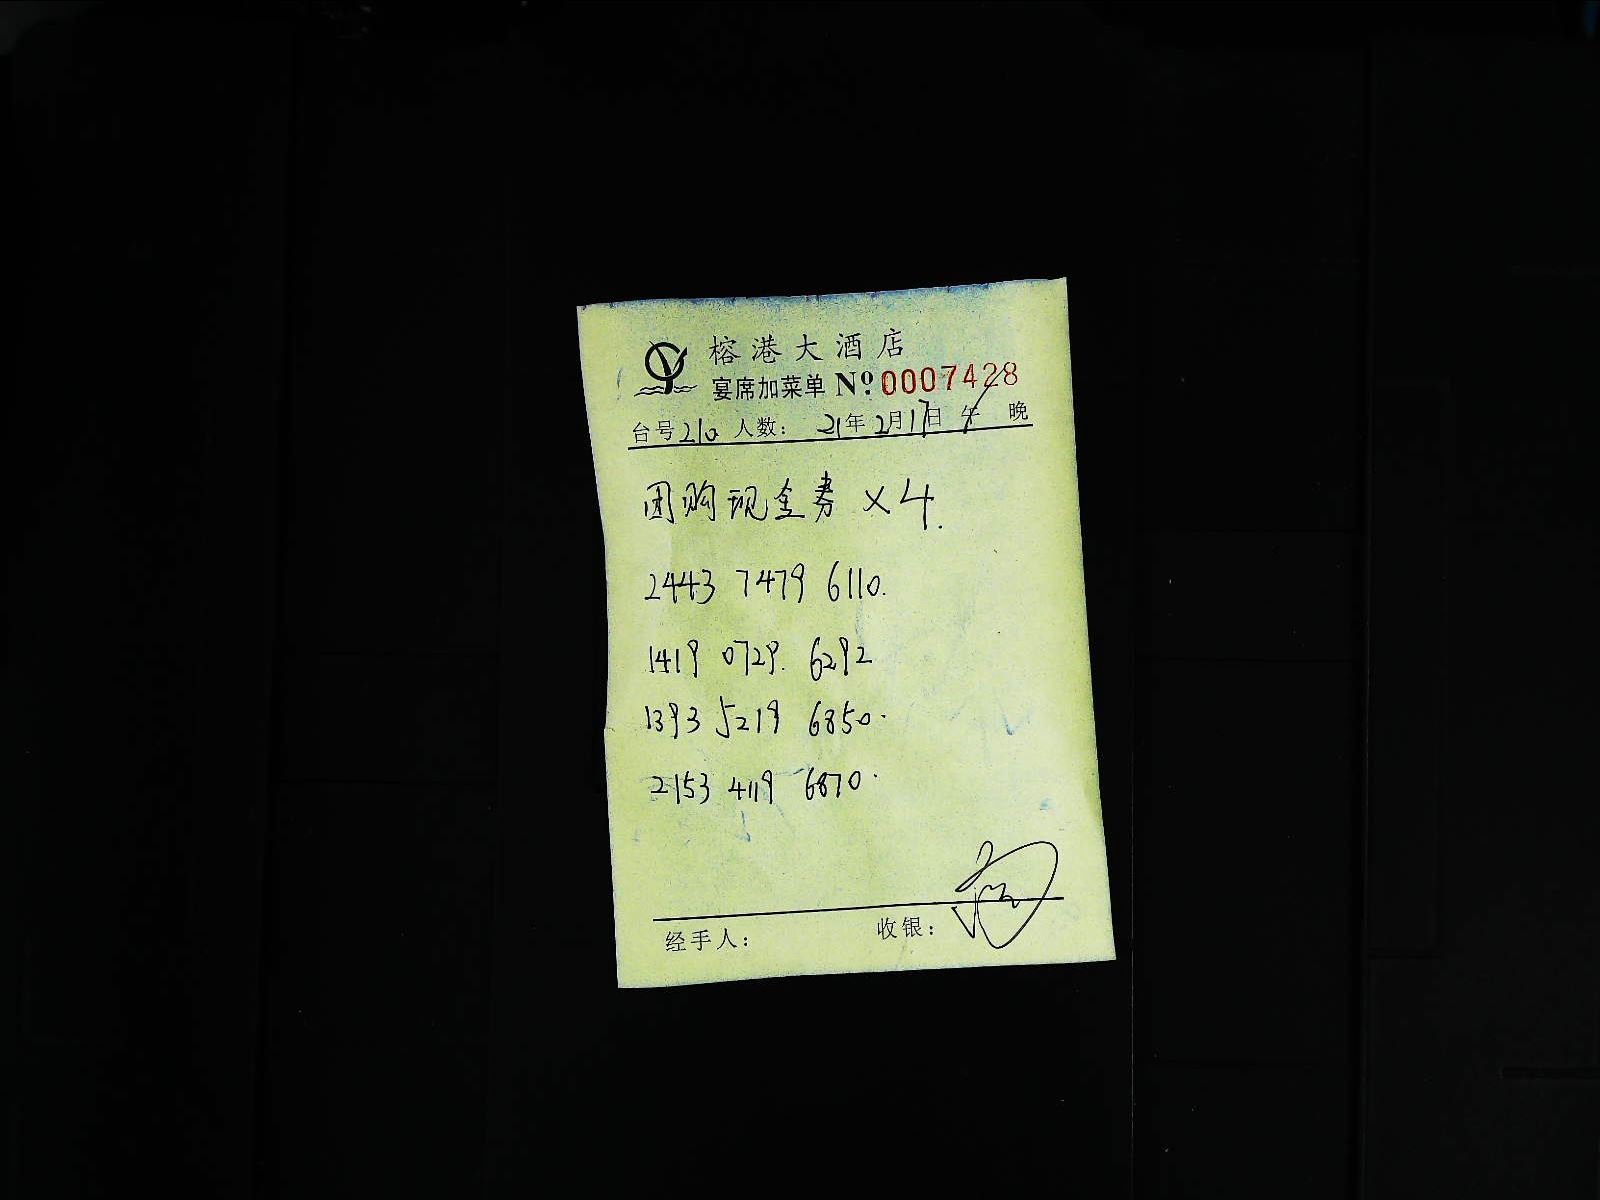 榕港大酒店
宴席加菜单 Nº 0007428
台号210 人数： 21年2月17日 午 晚
团购现金券 ×4.
2443 7479 6110.
1419 0729. 6292
1393 5219 6850.
2153 4119 6870.
经手人： 收银：